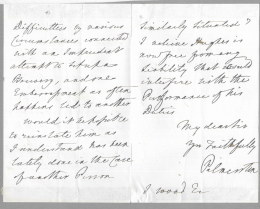 Difficulties by various
circumstances connected
with an Imprudent
attempt to set up a
Brewery, and one
Embarrassment as often
happens led to another
would it be possible
to reinstate him as
I understand has been
lately done in the Case
of another Person
similarly situated?
I believe Hughes is
now free from any
Liability that would
interfere with the
Performance of his
Duties
My dear Sir
Yrs faithfully
Palmerston
I wood Es